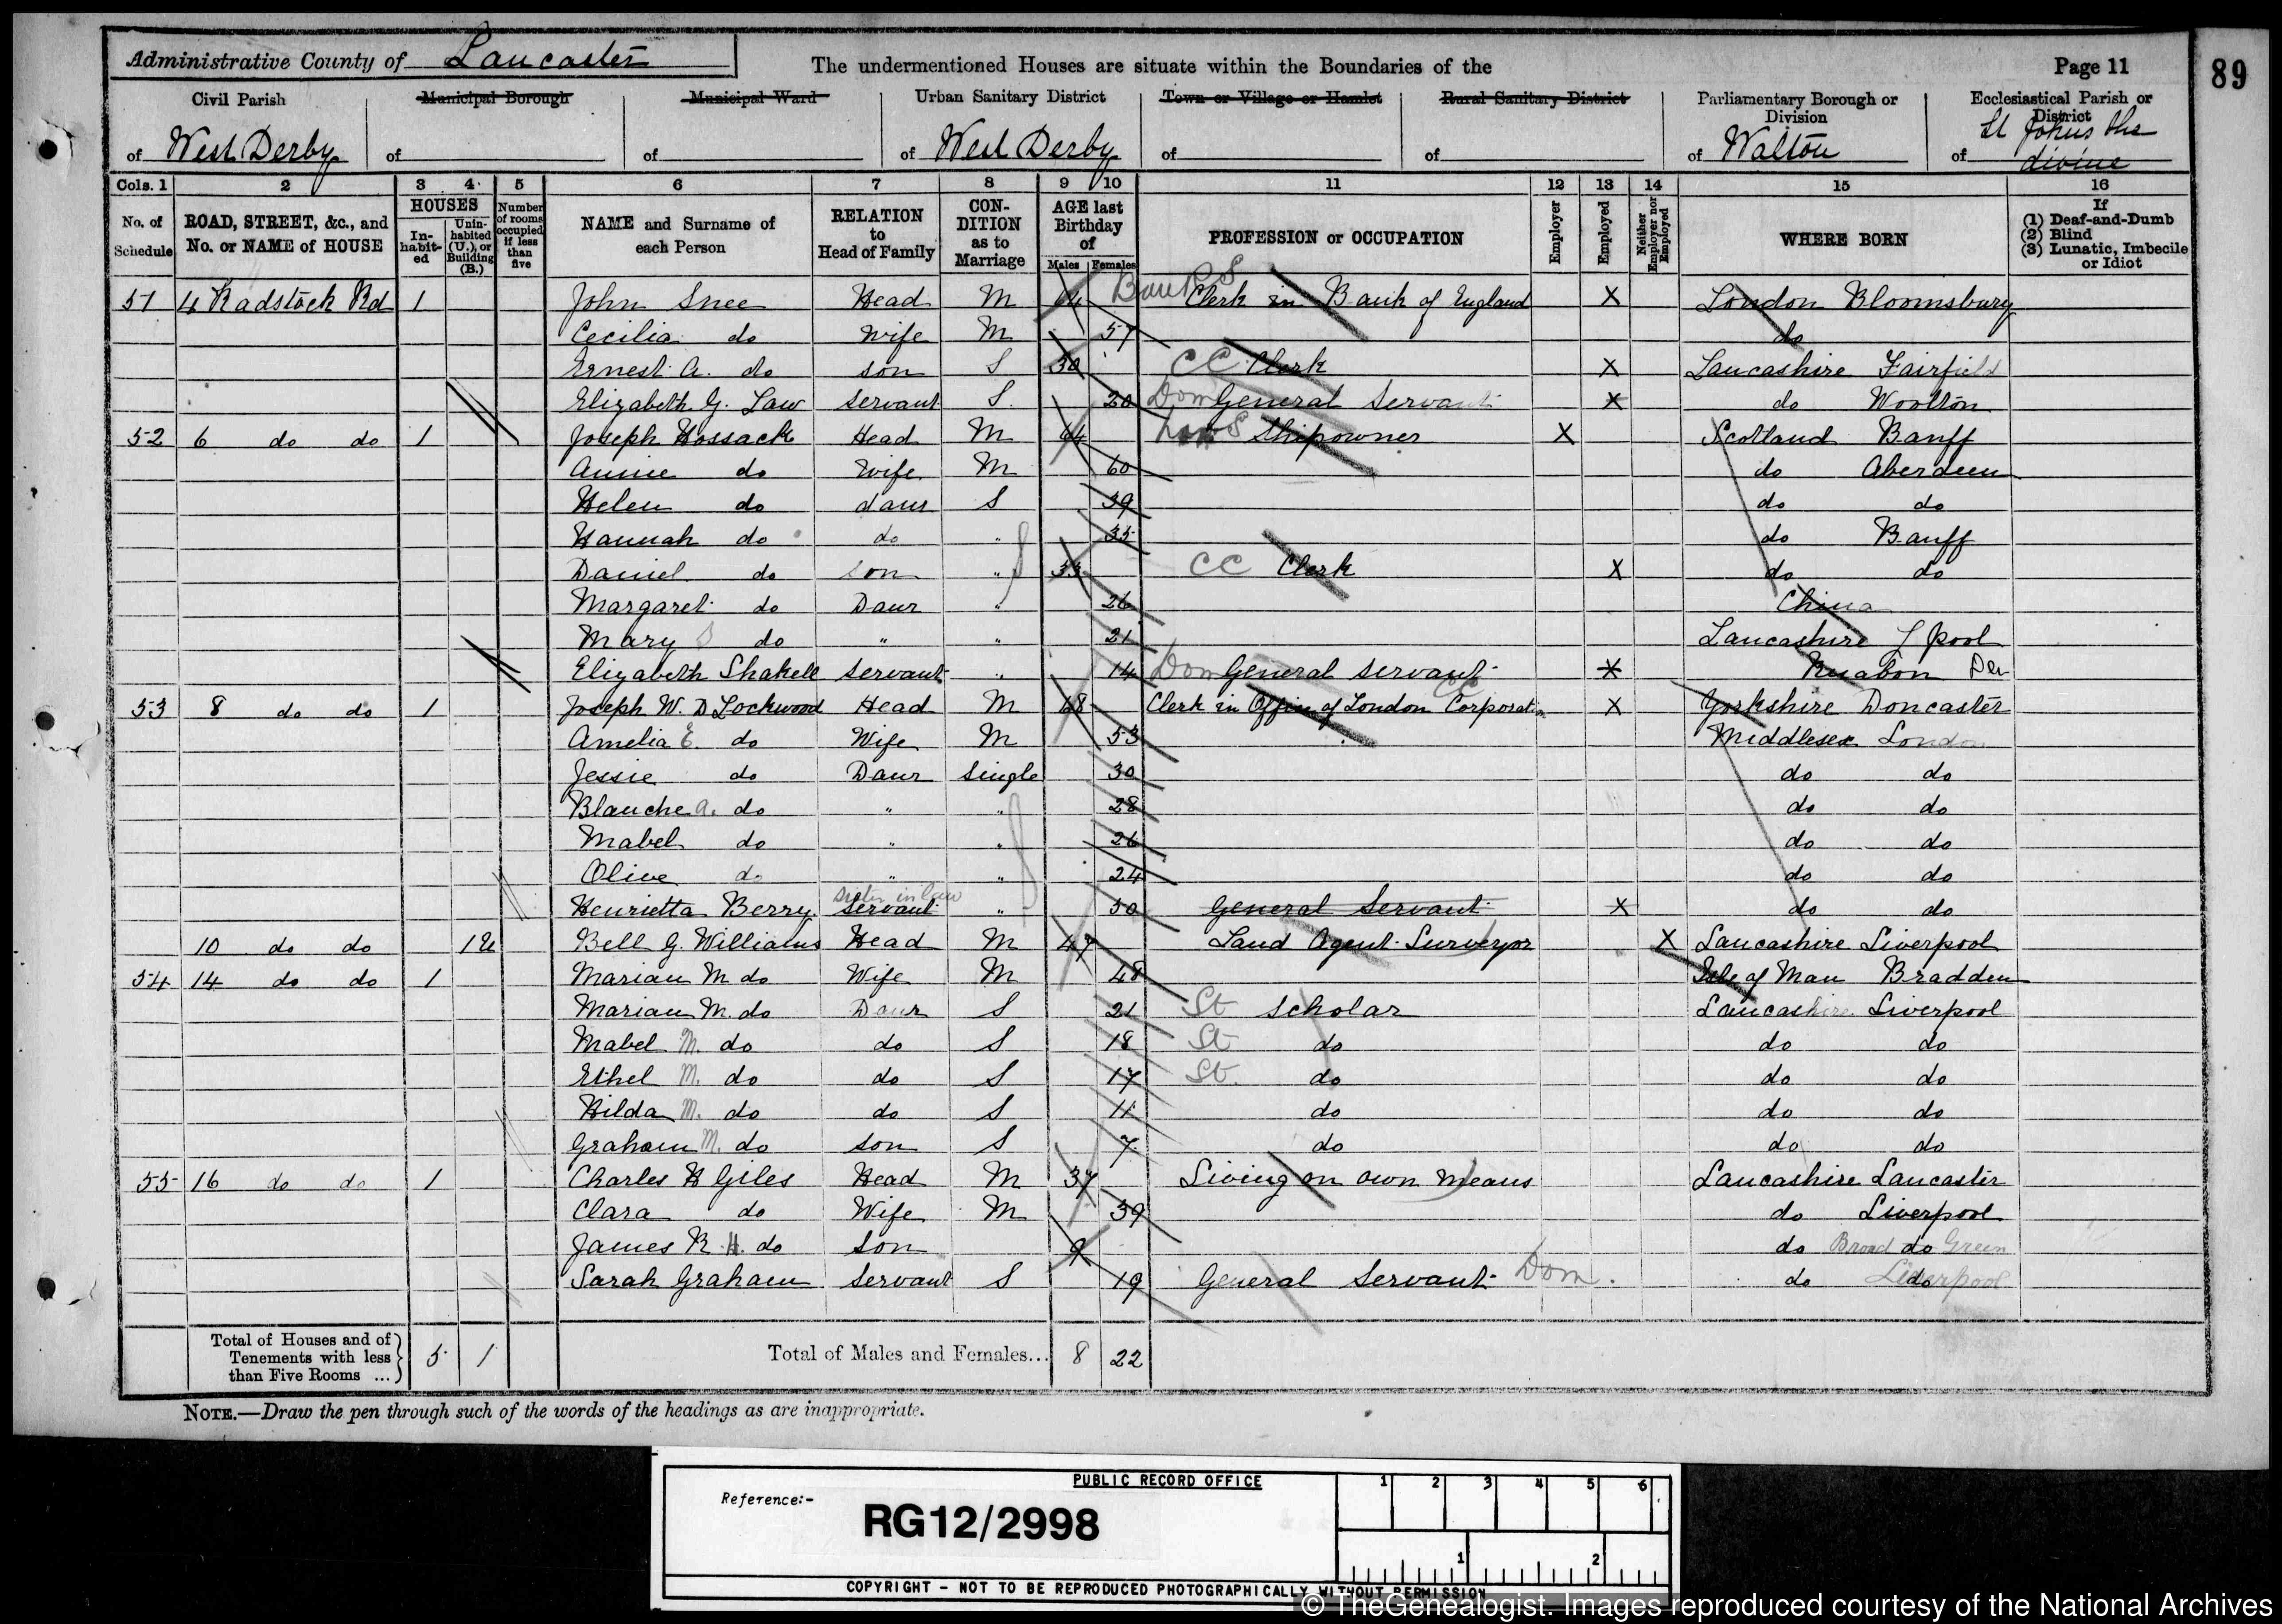 Administrative County of Lancaster
The undermentioned Houses are situate within the Boundaries of the
Page 11
89
Civil Parish Municipal Borough Municipal Ward Urban Sanitary District Town or Village or Hamlet Rural Sanitary District Parliamentary Borough or Division Ecclesiastical Parish or District
of West Derby of of of West Derby of of of Walton of St Johns the divine
Cols. 1 2 3 4 5 6 7 8 9 10 11 12 13 14 15 16
No. of Schedule ROAD, STREET, &c., and No. or NAME of HOUSE HOUSES Inhabited Uninhabited (U.), or Building (B.) Number of rooms occupied if less than five NAME and Surname of each Person RELATION to Head of Family CONDITION as to Marriage AGE last Birthday of Males Females PROFESSION or OCCUPATION Employer Employed Neither Employer nor Employed WHERE BORN If (1) Deaf-and-Dumb (2) Blind (3) Lunatic, Imbecile or Idiot
51 4 Radstock Rd 1 John Snee Head M 64 Clerk in Bank of England X London Bloomsbury
Cecilia do Wife M 57 do
Ernest A. do son S 30 CC Clerk X Lancashire Fairfield
Elizabeth G. Law Servant S. 20 Dom General Servant X do Woolton
52 6 do do 1 Joseph Hossack Head M 64 Shipowner X Scotland Banff
Annie do Wife M 60 do Aberdeen
Helen do daur S 39 do do
Hannah do do " 35 do Banff
Daniel do son " 33 CC Clerk X do do
Margaret do Daur " 26 China
Mary S do " " 21 Lancashire L pool
Elizabeth Shakell Servant " 14 Dom General servant X Ruabon Den
53 8 do do 1 Joseph W. D Lockwood Head M 68 Clerk in Office of London Corporatn X Yorkshire Doncaster
Amelia E. do Wife M 53 Middlesex London
Jessie do Daur Single 30 do do
Blanche A. do " " 28 do do
Mabel do " " 26 do do
Olive do " " 24 do do
Henrietta Berry Servant sister in law " 50 General Servant X do do
10 do do 1U Bell G. Williams Head M 49 Land Agent Surveyor X Lancashire Liverpool
54 14 do do 1 Marian M do Wife M 48 Isle of Man Bradden
Marian M. do Daur S 21 St Scholar Lancashire Liverpool
Mabel M. do do S 18 St do do do
Ethel M. do do S 17 St do do do
Hilda M. do do S 11 do do do
Graham M. do son S 7 do do do
55 16 do do 1 Charles H Giles Head M 37 Living on own Means Lancashire Lancaster
Clara do Wife M 39 do Liverpool
James R H. do son 9 do Broad do Green
Sarah Graham Servant S 19 General Servant Dom. do do Liverpool
Total of Houses and of Tenements with less than Five Rooms ... 5 1 Total of Males and Females... 8 22
NOTE.—Draw the pen through such of the words of the headings as are inappropriate.
PUBLIC RECORD OFFICE 1 2 3 4 5 6
Reference:-
RG12/2998
1 2
COPYRIGHT - NOT TO BE REPRODUCED PHOTOGRAPHICALLY WITHOUT PERMISSION
© TheGenealogist. Images reproduced courtesy of the National Archives